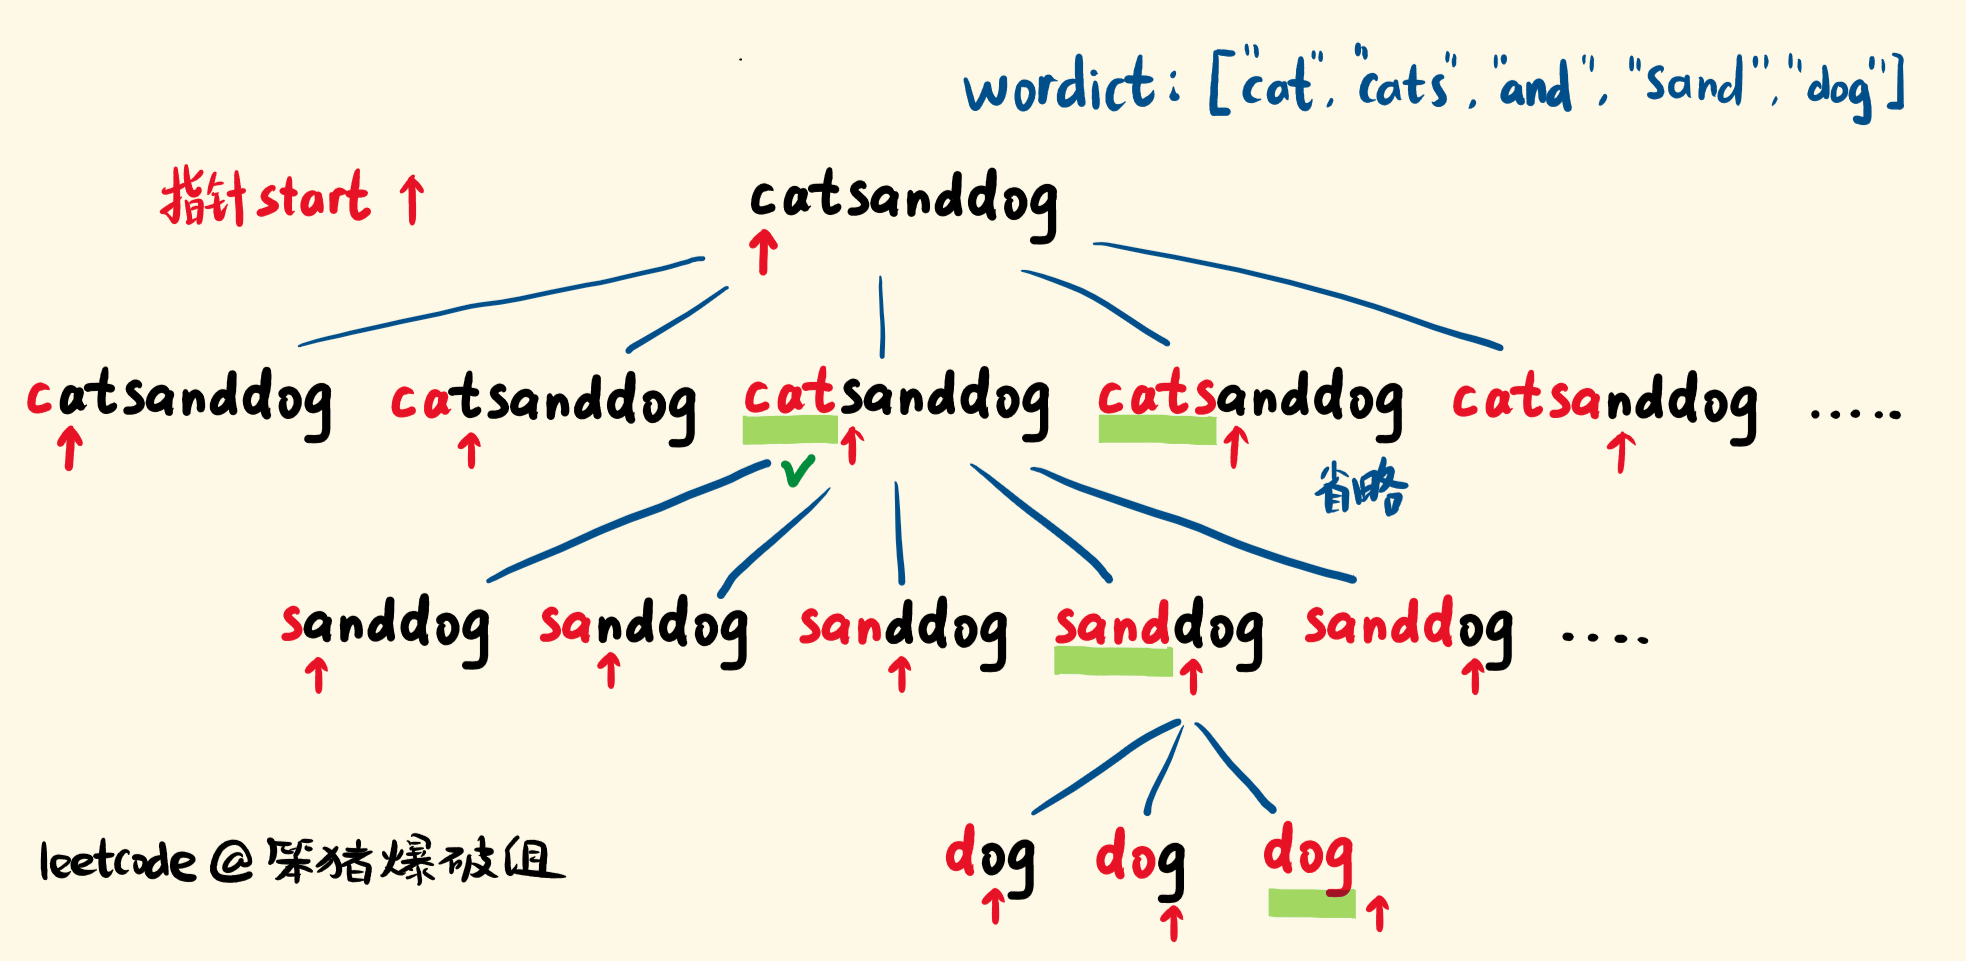 wordict: ["cat", "cats", "and", "sand", "dog"]
指针start ↑
catsanddog
catsanddog catsanddog catsanddog catsanddog catsanddog .....
省略
sanddog sanddog sanddog sanddog sanddog ....
dog dog dog
leetcode @ 笨猪爆破组